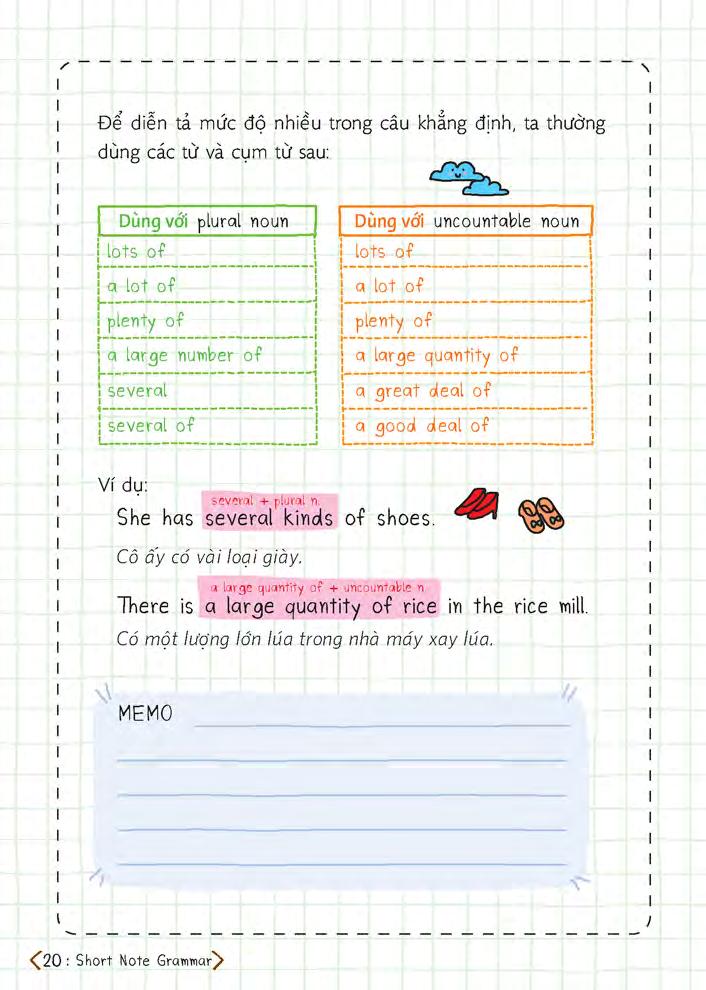 Để diễn tả mức độ nhiều trong câu khẳng định, ta thường
dùng các từ và cụm từ sau:
Dùng với plural noun
lots of
a lot of
plenty of
a large number of
several
several of
Dùng với uncountable noun
lots of
a lot of
plenty of
a large quantity of
a great deal of
a good deal of
Ví dụ:
several + plural n.
She has several kinds of shoes.
Cô ấy có vài loại giày.
a large quantity of + uncountable n.
There is a large quantity of rice in the rice mill.
Có một lượng lớn lúa trong nhà máy xay lúa.
MEMO
20 : Short Note Grammar